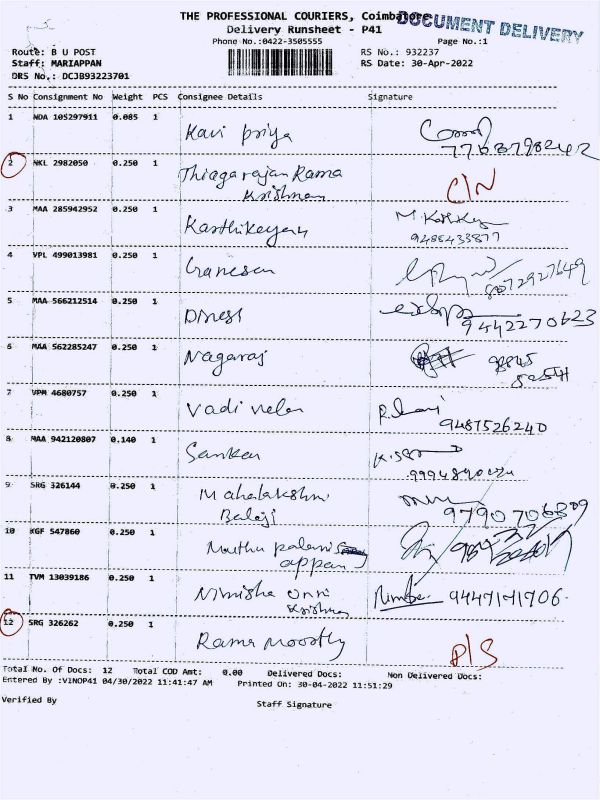 THE PROFESSIONAL COURIERS, Coimbatore
DOCUMENT DELIVERY
Delivery Runsheet - P41
Phone No.:0422-3505555 Page No.:1
Route: B U POST RS No.: 932237
Staff: MARIAPPAN RS Date: 30-Apr-2022
DRS No.: DCJB93223701
S No Consignment No Weight PCS Consignee Details Signature
1 NDA 105297911 0.085 1 Kavi priya
2 NKL 2982050 0.250 1 Thiagarajan Rama
Krishnan C/N
3 MAA 285942952 0.250 1 Karthikeyan
9486433877
4 VPL 499013981 0.250 1 Ganesan
8072927649
5 MAA 566212514 0.250 1 Dinesh
9442270623
6 MAA 562285247 0.250 1 Nagaraj 98845
7 VPM 4680757 0.250 1 Vadi velan
9487526240
8 MAA 942120807 0.140 1 Sankar
9 SRG 326144 0.250 1 Mahalakshmi
Balaji 9790706309
10 KGF 547860 0.250 1 Muthu palani
appan
11 TVM 13039186 0.250 1 Nimisha Unni
Krishnan
12 SRG 326262 0.250 1 Rama moorthy P/S
Total No. Of Docs: 12 Total COD Amt: 0.00 Delivered Docs: Non Delivered Docs:
Entered By :VINOP41 04/30/2022 11:41:47 AM Printed On: 30-04-2022 11:51:29
Verified By Staff Signature